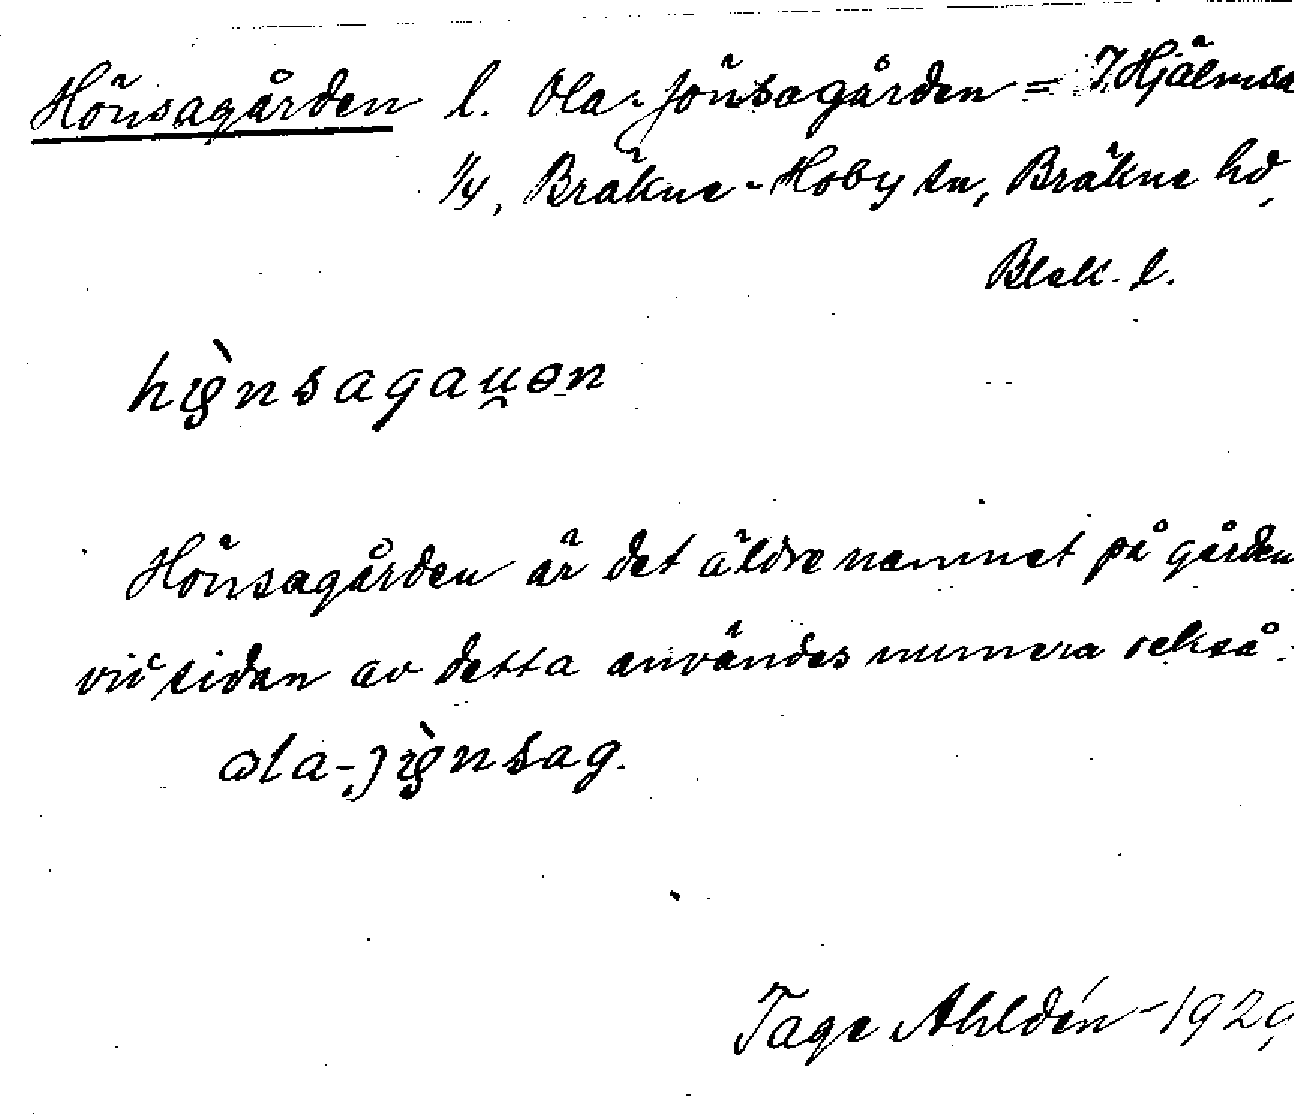 Hönsagården l. Ola-Jönsagården = 7. Hjälmsa
1/4, Bräkne-Hoby sn, Bräkne hd,
Blek. l.
Hönsagården är det äldre namnet på gården
vid sidan av detta användes numera också
Tage Ahldén 1929